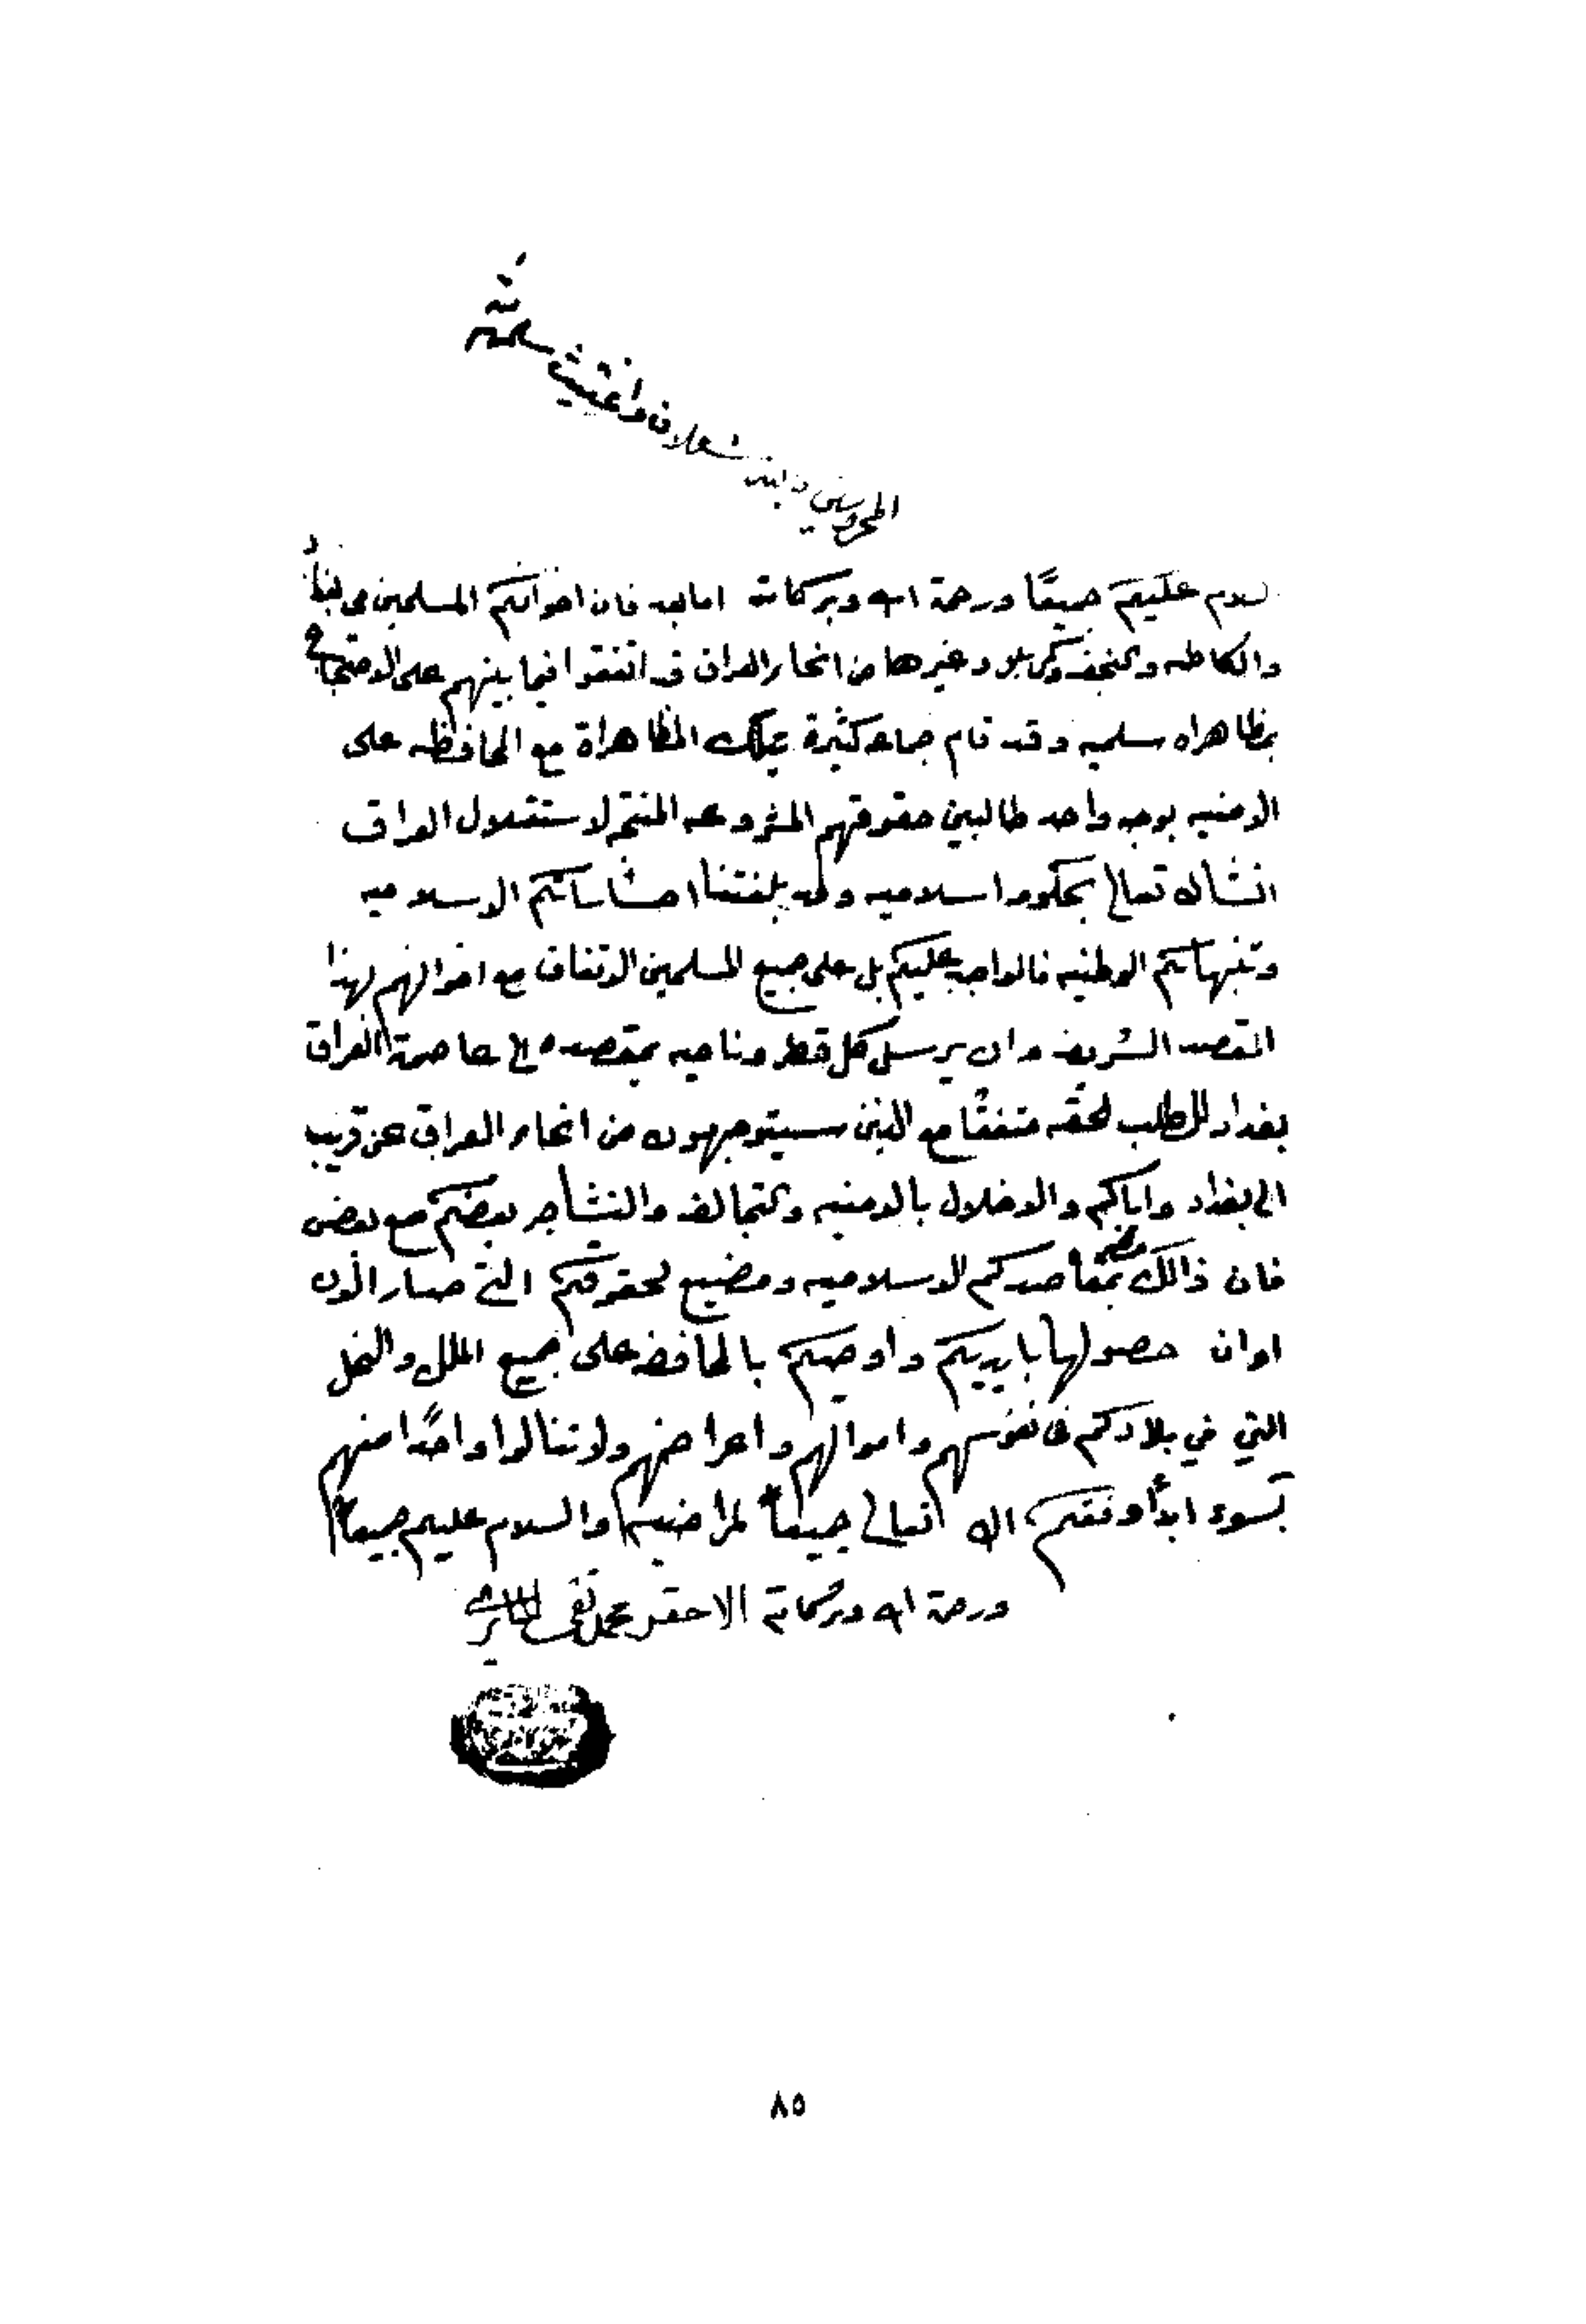 سلمه الله
شعلان واغثيث
السلام عليكم جميعًا ورحمة الله وبركاته اما بعد فان اخوانكم المسلمين في بغداد
والكاظميه والنجف وكربلا وغيرها من انحاء العراق قد اتفقوا فيما بينهم على الاحتجاج
بمظاهراه سلميه وقد قام جماعه كثيرة بتلك المظاهراة مع المحافظه على
الامنيه بوجه واحد طالبين حقوقهم المشروعه المنتجه لاستقلال العراق
انشاالله تعالى بحكومه اسلاميه وقد بلغتنا احساساتكم الاسلاميه
وتنبهاتكم الوطنيه فالواجب عليكم بل على جميع المسلمين الاتفاق مع اخوانهم بهذا
المقصد الشريف وان يرسل كل قطر وناحيه بمقصده الى عاصمة العراق
بغداد للطلب لحقه متفقًا مع الذين سيتوجهون من انحاء العراق عن قريب
الى بغداد واياكم والاخلال بالامنيه والتخالف والتشاجر بعضكم مع بعض
فان ذالك مضر بمقاصدكم الاسلاميه ومضيع لحقوقكم التي صار الأن
اوان حصولها بايديكم واوصيكم بالمحافظه على جميع الملل والنحل
التي في بلادكم في نفوسهم واموالهم واعراضهم ولا تنالوا واحدًا منهم
بسوء ابدًا وفقكم الله تعالى جميعاً لمراضيه والسلام عليكم جميعاً
ورحمة الله وبركاته الاحقر محمد تقي الحائري
٨٥